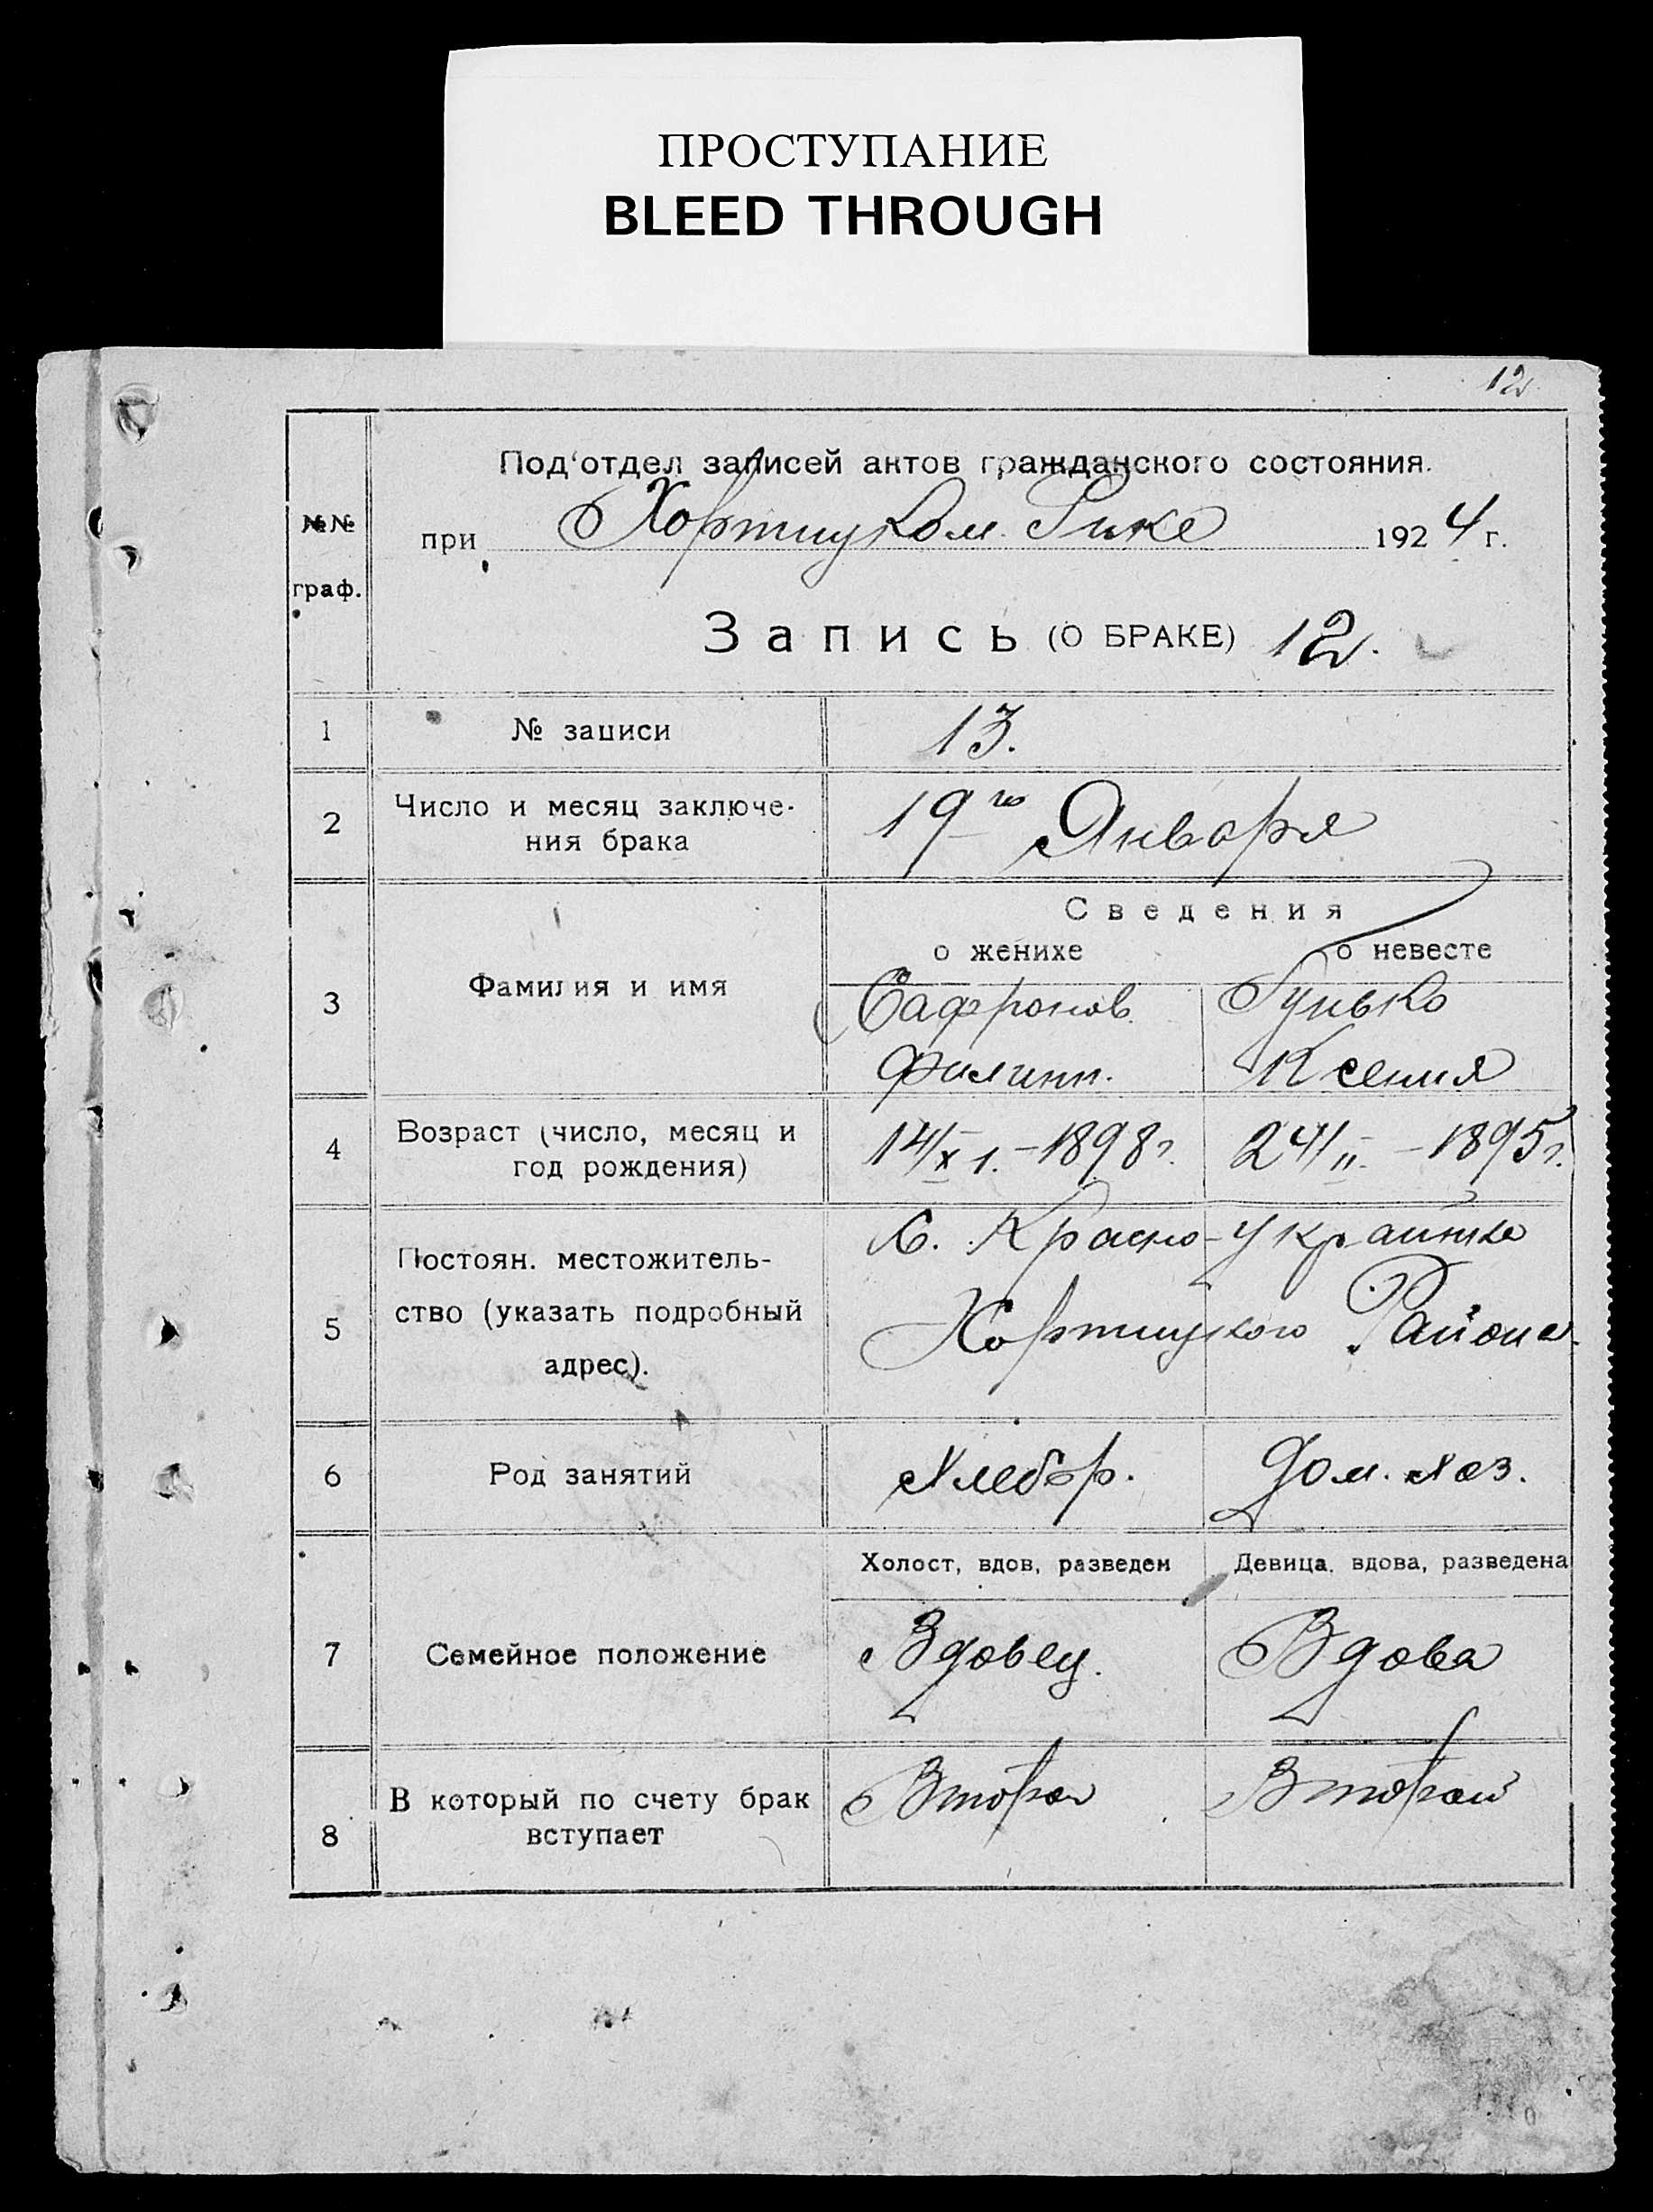 ПРОСТУПАНИЕ
BLEED THROUGH
12
№№ граф.
Под'отдел записей актов гражданского состояния.
при Хортицком Рике 1924 г.
Запись (О БРАКЕ) 12.
1 № записи 13.
2 Число и месяц заключе-
ния брака 19го Января
Сведения
о женихе о невесте
3 Фамилия и имя Сафронов Гунько
Филипп. Ксения
4 Возраст (число, месяц и
год рождения) 14/XI.-1898г. 24/II.-1895г.
5 Постоян. местожитель-
ство (указать подробный
адрес).
С. Красно-Украинка
Хортицкого Района.
6 Род занятий Хлебор. Дом. хоз.
Холост, вдов, разведен Девица, вдова, разведена
7 Семейное положение Вдовец. Вдова
8 В который по счету брак
вступает Второй Второй